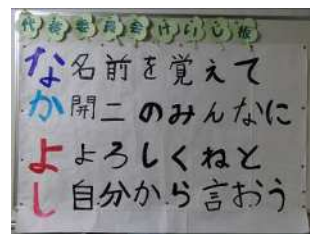 代表委員会けいじ板
な名前を覚えて
か開二のみんなに
よよろしくねと
し自分から言おう